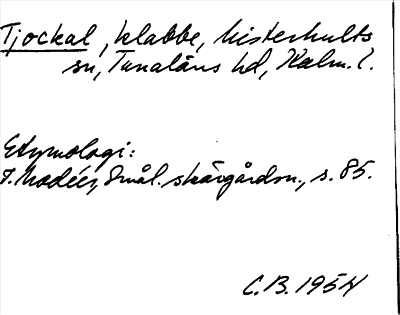 Tjockal, klabbe, Misterhults
sn, Tunaläns hd, Kalm. l.
Etymologi:
I. Modéer, Smål. skärgårdsn., s. 85.
C.B. 1954